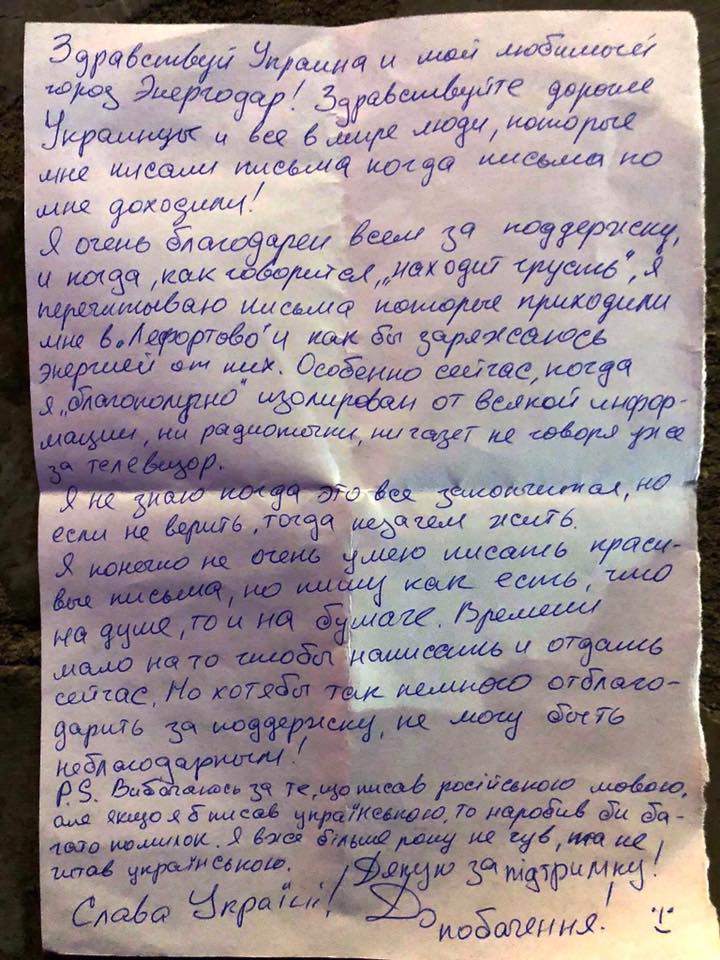 Здравствуй Украина и мой любимый
город Энергодар! Здравствуйте дорогие
Украинцы и все в мире люди, которые
мне писали письма когда письма ко
мне доходили!
Я очень благодарен всем за поддержку,
и когда, как говорится, „находит грусть“, я
перечитываю письма которые приходили
мне в „Лефортово“ и как бы заряжаюсь
энергией от них. Особенно сейчас, когда
я „благополучно“ изолирован от всякой инфор-
мации, ни радиоточки, ни газет не говоря уже
за телевизор.
Я не знаю когда это все закончится, но
если не верить, тогда незачем жить.
Я конечно не очень умею писать краси-
вые письма, но пишу как есть, что
на душе, то и на бумаге. Времени
мало на то чтобы написать и отдать
сейчас. Но хотябы так немного отблаго-
дарить за поддержку, не могу быть
неблагодарным!
P.S. Вибачаюсь за те, що писав російською мовою,
але якщо я б писав українською, то наробив би ба-
гато помилок. Я вже більше року не чув, та не
читав українською. Дякую за підтримку!
Слава Україні! До
побачення!